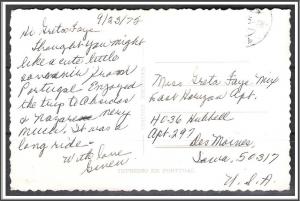 9/23/75
Hi Greta Faye,
Thought you might
like a cute little
souvenir from
Portugal. Enjoyed
the trip to Obidos
& Nazare very
much. It was a
long ride -
With love
Gwen
Miss Greta Faye
East Horizon Apt.
4036 Hubbell
Apt. 297
Des Moines,
Iowa, 50317
U. S. A.
IMPRESSO EM PORTUGAL